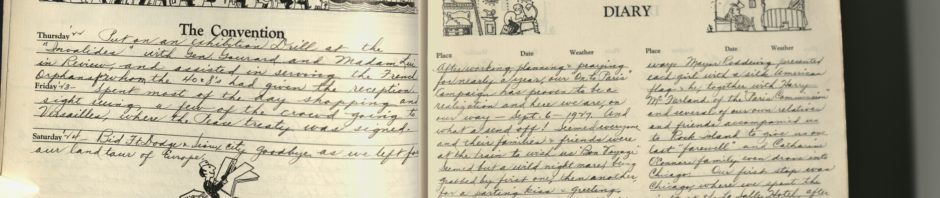 The Convention
Thursday 22 Put on an exhibition Drill at the
"Invalides" with Gen. Gourard and Madam
in Review, and assisted in serving the French
Orphans for whom the 40 & 8's had given the reception.
Friday 23- Spent most of the day shopping and
sight seeing, a few of the crowd going to
Versailles, where the Peace treaty was signed.
Saturday 24 Bid Ft. Dodge & Sioux City Goodbye as we left for
our land tour of Europe.
DIARY
Place Date Weather
After working, planning & praying
for nearly a year, our "On to Paris"
Campaign has proven to be a
realization and here we are, on
our way - Sept. 6 - 1927. And
what a send off! Seemed everyone
and their families & friends were
at the train to wish us "Bon Voyage"
Seemed but a wild night mare, being
grabbed by first one, then another
for a parting kiss & greeting.
Place Date Weather
ways. Mayor presented
each girl with a silk American
flag & he, together with Harry
McFarland of the "Paris Commission"
and several of our own relatives
and friends accompanied us
to Rock Island to give us one
last "farewell" and Catharine
O'Connors family even drove into
Chicago. Our first stop was
Chicago, where we spent the
Hotel, after